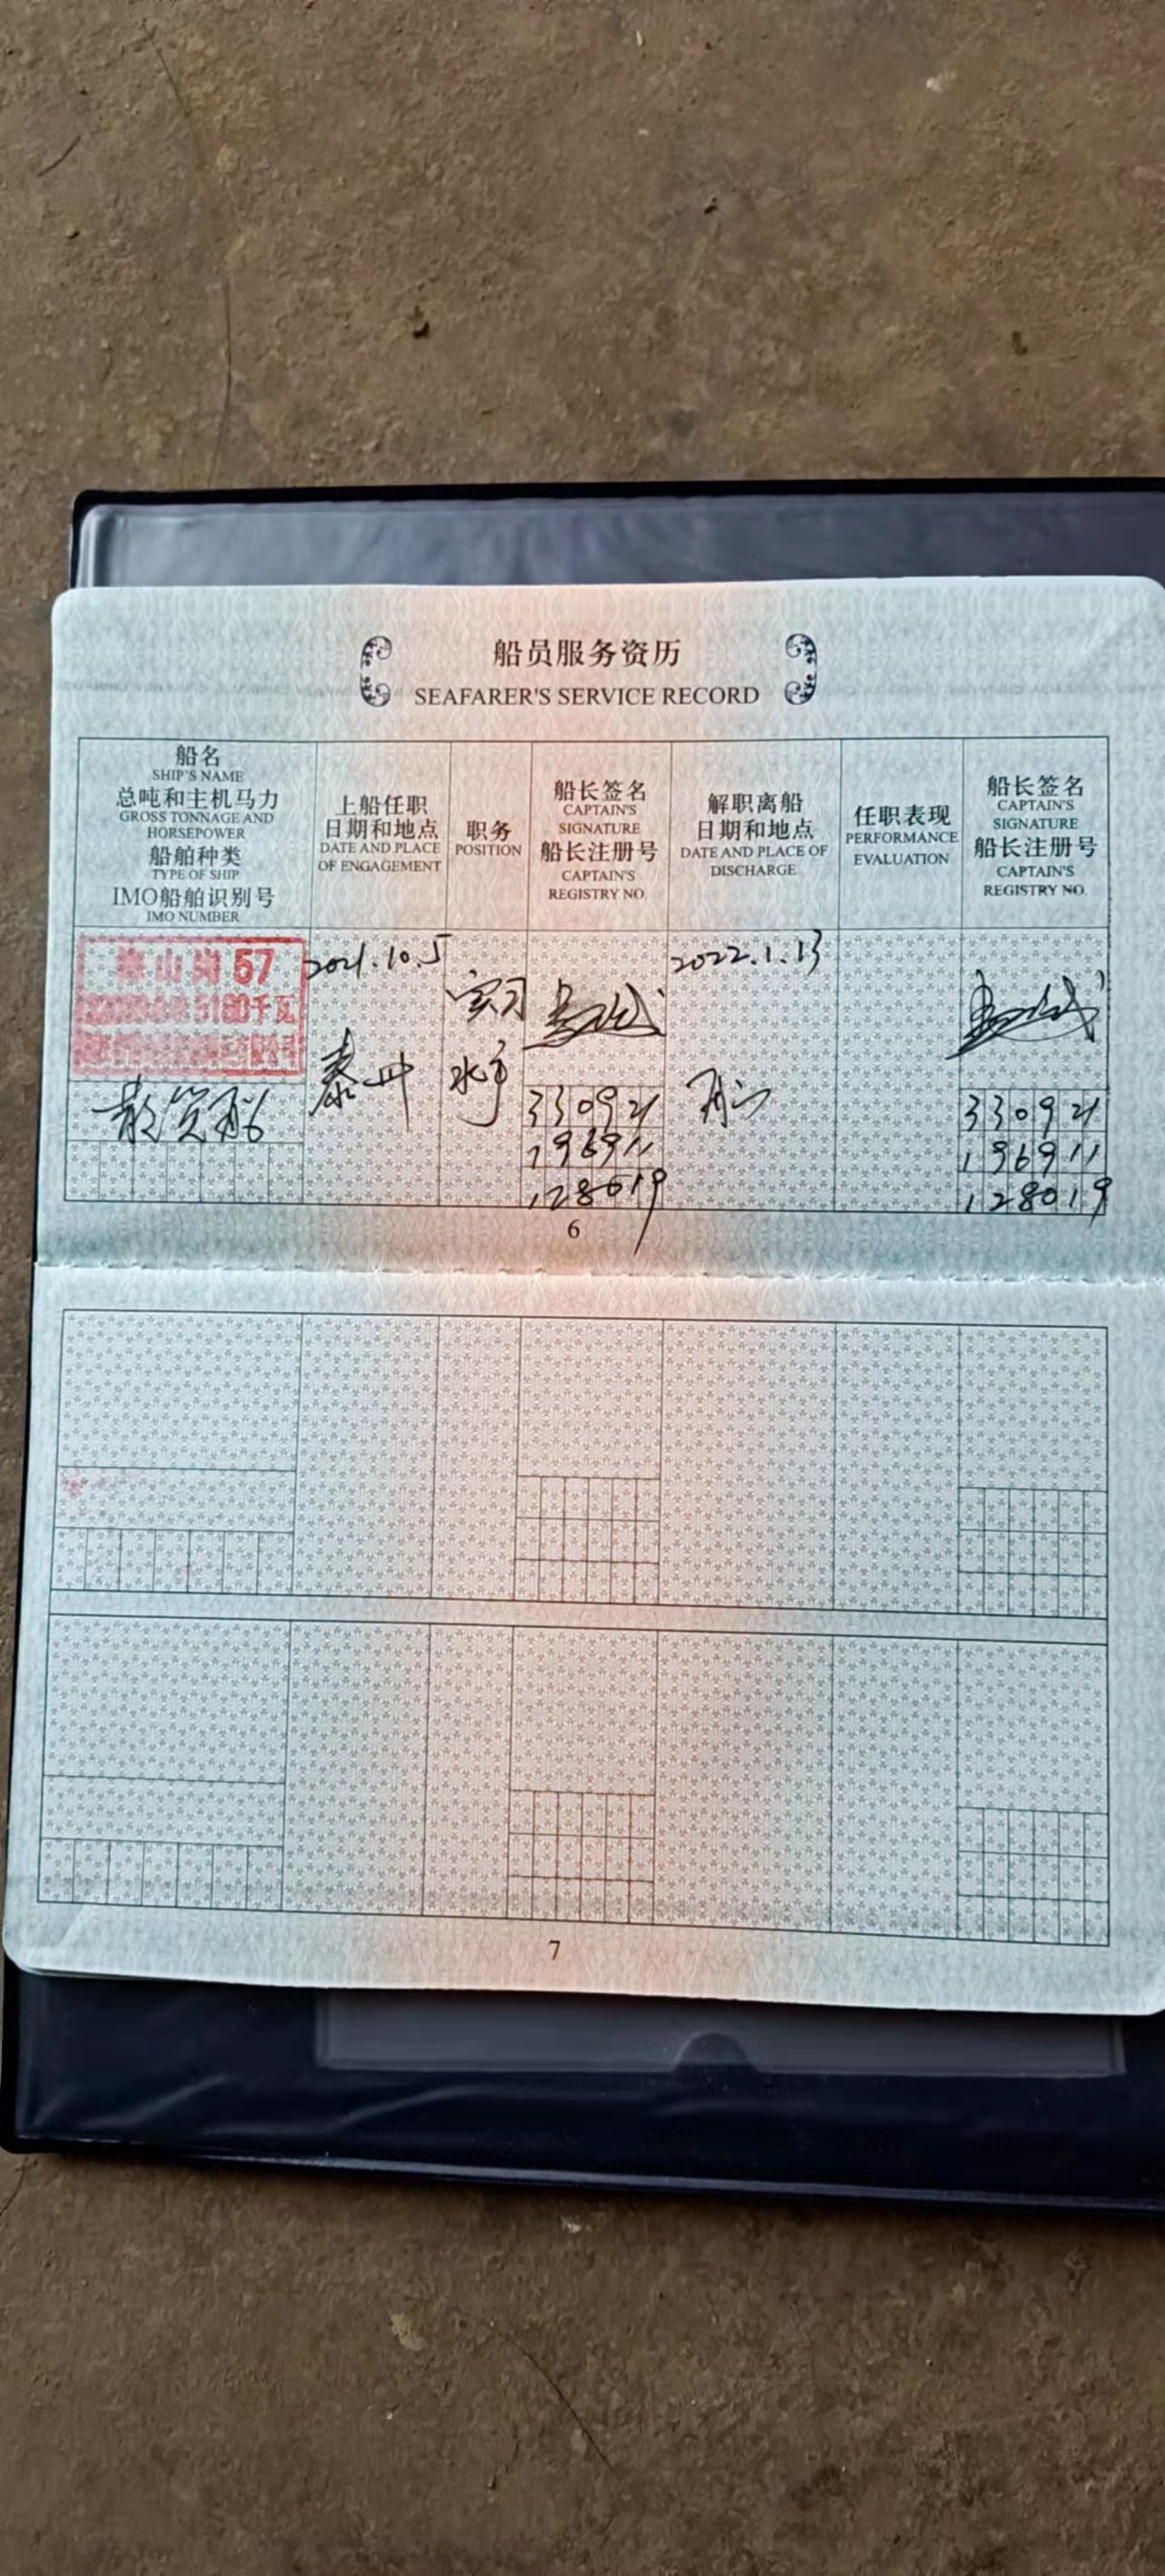 船员服务资历
SEAFARER'S SERVICE RECORD
船名
SHIP'S NAME
总吨和主机马力
GROSS TONNAGE AND
HORSEPOWER
船舶种类
TYPE OF SHIP
IMO船舶识别号
IMO NUMBER
上船任职
日期和地点
DATE AND PLACE
OF ENGAGEMENT
职务
POSITION
船长签名
CAPTAIN'S
SIGNATURE
船长注册号
CAPTAIN'S
REGISTRY NO.
解职离船
日期和地点
DATE AND PLACE OF
DISCHARGE
任职表现
PERFORMANCE
EVALUATION
船长签名
CAPTAIN'S
SIGNATURE
船长注册号
CAPTAIN'S
REGISTRY NO.
山 57
千瓦
散货船
2021.10.5
泰州
实习
水手
330921
196911
128019
2022.1.13
舟山
330921
196911
128019
6
7